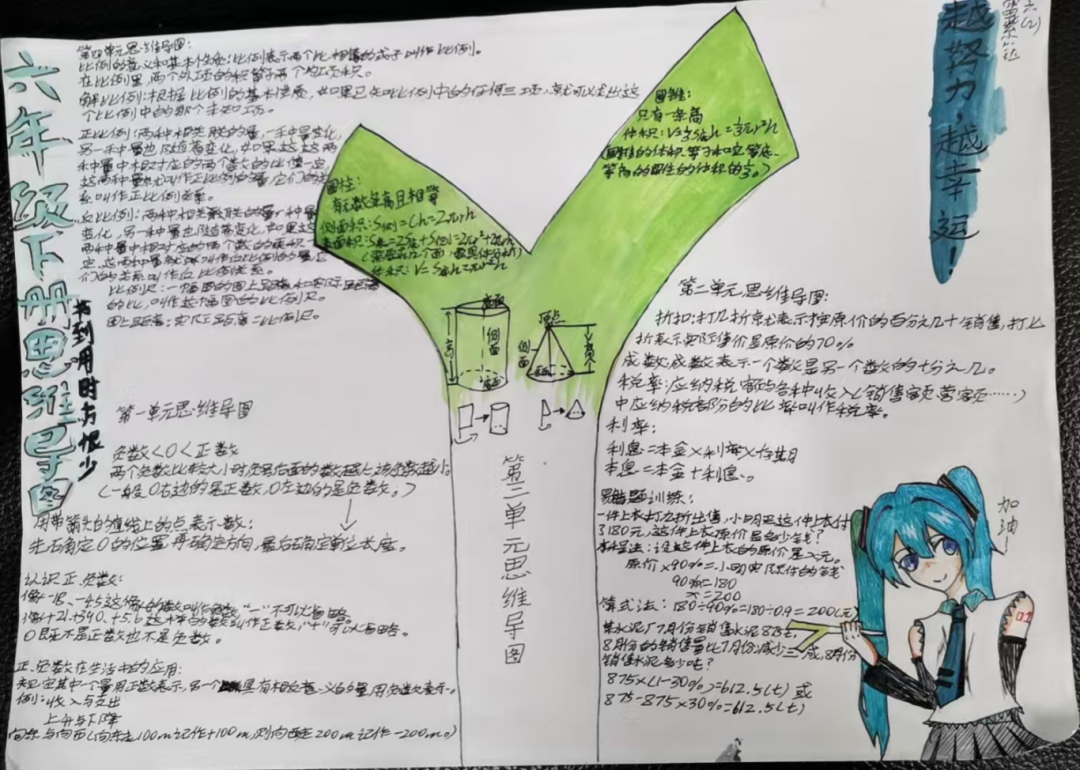 六年级下册思维导图
书到用时方恨少
越努力,越幸运!
六(2)
第四单元思维导图:
比例的意义和基本性质:比例表示两个比相等的式子叫作比例。
在比例里,两个外项的积等于两个内项积。
解比例:根据比例的基本性质,如果已知比例中的任何三项,就可以求出这
个比例中的那个未知项。
正比例:两种相关联的量,一种量变化,
另一种量也随着变化,如果这两
种量中相对应的两个数的比值一定,
这两种量就叫作正比例的量,它们的关
系叫作正比例关系。
反比例:两种相关联的量,一种量
变化,另一种量也随着变化,如果这
两种量中相对应的两个数的乘积一
定,这两种量就叫作反比例的量,它
们的关系叫作反比例关系。
比例尺:一幅图的图上距离和实际距离
的比,叫作这幅图的比例尺。
图上距离:实际距离=比例尺。
圆柱:
有无数条高且相等
侧面积:S侧=Ch=2πrh
表面积:S表=2S底+S侧=2πr²+2πrh
体积:V=S底h=πr²h
圆锥:
只有一条高
体积:V=⅓S底h=⅓πr²h
(圆锥的体积等于和它等底
等高的圆柱的体积的⅓。)
底面
侧面
高
底面
顶点
侧面
高
底面
第三单元思维导图
第一单元思维导图
负数<0<正数
两个负数比较大小时,负号后面的数越大,该负数越小。
(一般0右边的是正数,0左边的是负数。)
用带箭头的直线上的点表示数:
先确定0的位置,再确定方向,最后确定单位长度。
认识正、负数:
像-18、-45这样的数叫作负数“-”不可以省略
像+21、+390、+5.6这样的数叫作正数,“+”可以省略。
0既不是正数也不是负数。
正、负数在生活中的应用:
规定其中一个量用正数表示,另一个具有相反意义的量用负数表示。
例:收入与支出
上升与下降
向东与向西(向东走100m记作+100m,则向西走200m记作-200m。)
第二单元思维导图:
折扣:打几折就表示按原价的百分之几十销售,打七
折表示实际售价是原价的70%
成数:成数表示一个数是另一个数的十分之几。
税率:应纳税额与各种收入(销售额、营业额……)
中应纳税部分的比率叫作税率。
利率:
利息=本金×利率×存期
本息=本金+利息。
易错题训练:
一件上衣打九折出售,小明买这件上衣付
了180元,这件上衣原价是多少钱?
解:设这件上衣的原价是x元。
原价×90%=小明实际付的钱
90%x=180
x=200
算式法:180÷90%=180÷0.9=200(元)
某水泥厂7月份销售水泥875t,
8月份的销售量比7月份减少三成,8月份
销售水泥多少吨?
875×(1-30%)=612.5(t)或
875-875×30%=612.5(t)
加油
01